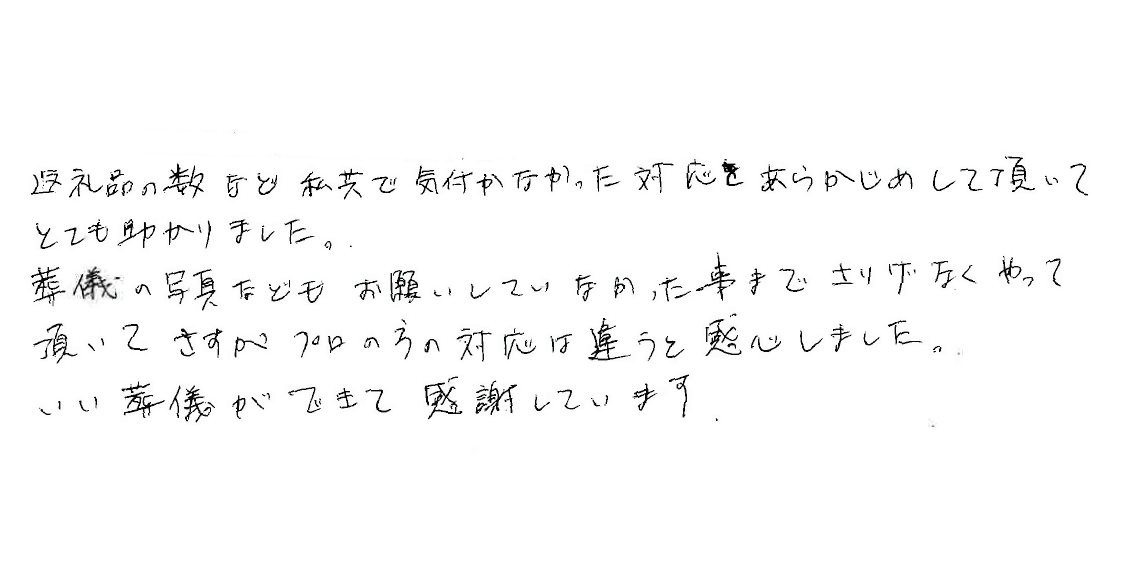 返礼品の数など私共で気付かなかった対応をあらかじめして頂いて
とても助かりました。
葬儀の写真などもお願いしていなかった事までさりげなくやって
頂いてさすがプロの方の対応は違うと感心しました。
いい葬儀ができて感謝しています